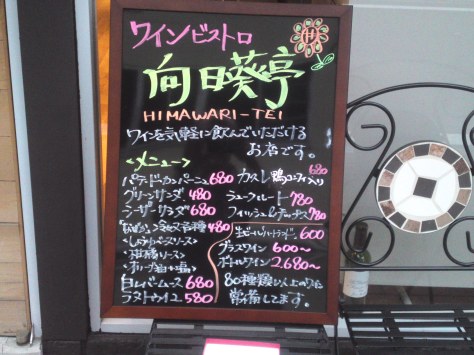 ワインビストロ
向日葵亭
HIMAWARI-TEI
ワインを気軽に飲んでいただける
お店です。
<メニュー>
パテドカンパーニュ 680
グリーンサラダ 480
シーザーサラダ 680
480
白レバームース 680
ラタトゥイユ 580
680
カスレ 鴨コンフィ入り
シュークルート 780
フィッシュ&チップス 780
生ビール ハートランド 600
グラスワイン 600〜
ボトルワイン 2,680〜
80種類以上のワイン
常備してます。